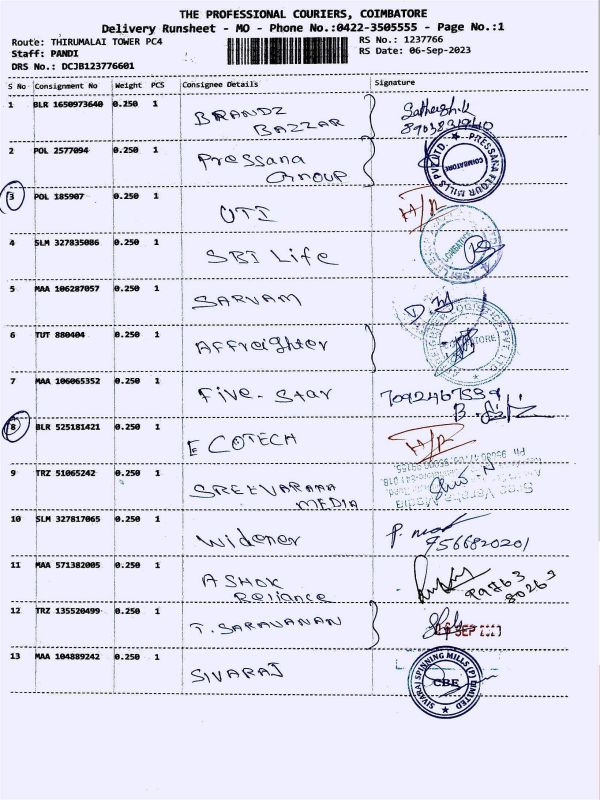 THE PROFESSIONAL COURIERS, COIMBATORE
Delivery Runsheet - MO - Phone No.:0422-3505555 - Page No.:1
Route: THIRUMALAI TOWER PC4
RS No.: 1237766
Staff: PANDI
RS Date: 06-Sep-2023
DRS No.: DCJB123776601
S No Consignment No Weight PCS Consignee Details Signature
1 BLR 1650973640 0.250 1 BRANDZ
BAZZAR
8903831940
2 POL 2577094 0.250 1 Pressana
Group
PRESSANA FLOUR MILLS PVT LTD
COIMBATORE
3 POL 185907 0.250 1 UTI
4 SLM 327835086 0.250 1 SBI Life
5 MAA 106287057 0.250 1 SARVAM
6 TUT 880404 0.250 1 Affreighter
7 MAA 106065352 0.250 1 Five-Star
7092467559
8 BLR 525181421 0.250 1 ECOTECH
9 TRZ 51065242 0.250 1 SREEVARAHA
MEDIA
10 SLM 327817065 0.250 1 Widener
9566820201
11 MAA 571382005 0.250 1 ASHOK
Reliance
12 TRZ 135520499 0.250 1 T. SARAVANAN
SEP
13 MAA 104889242 0.250 1 SIVARAJ
SIVARAJ SPINNING MILLS (P) LIMITED
CBE